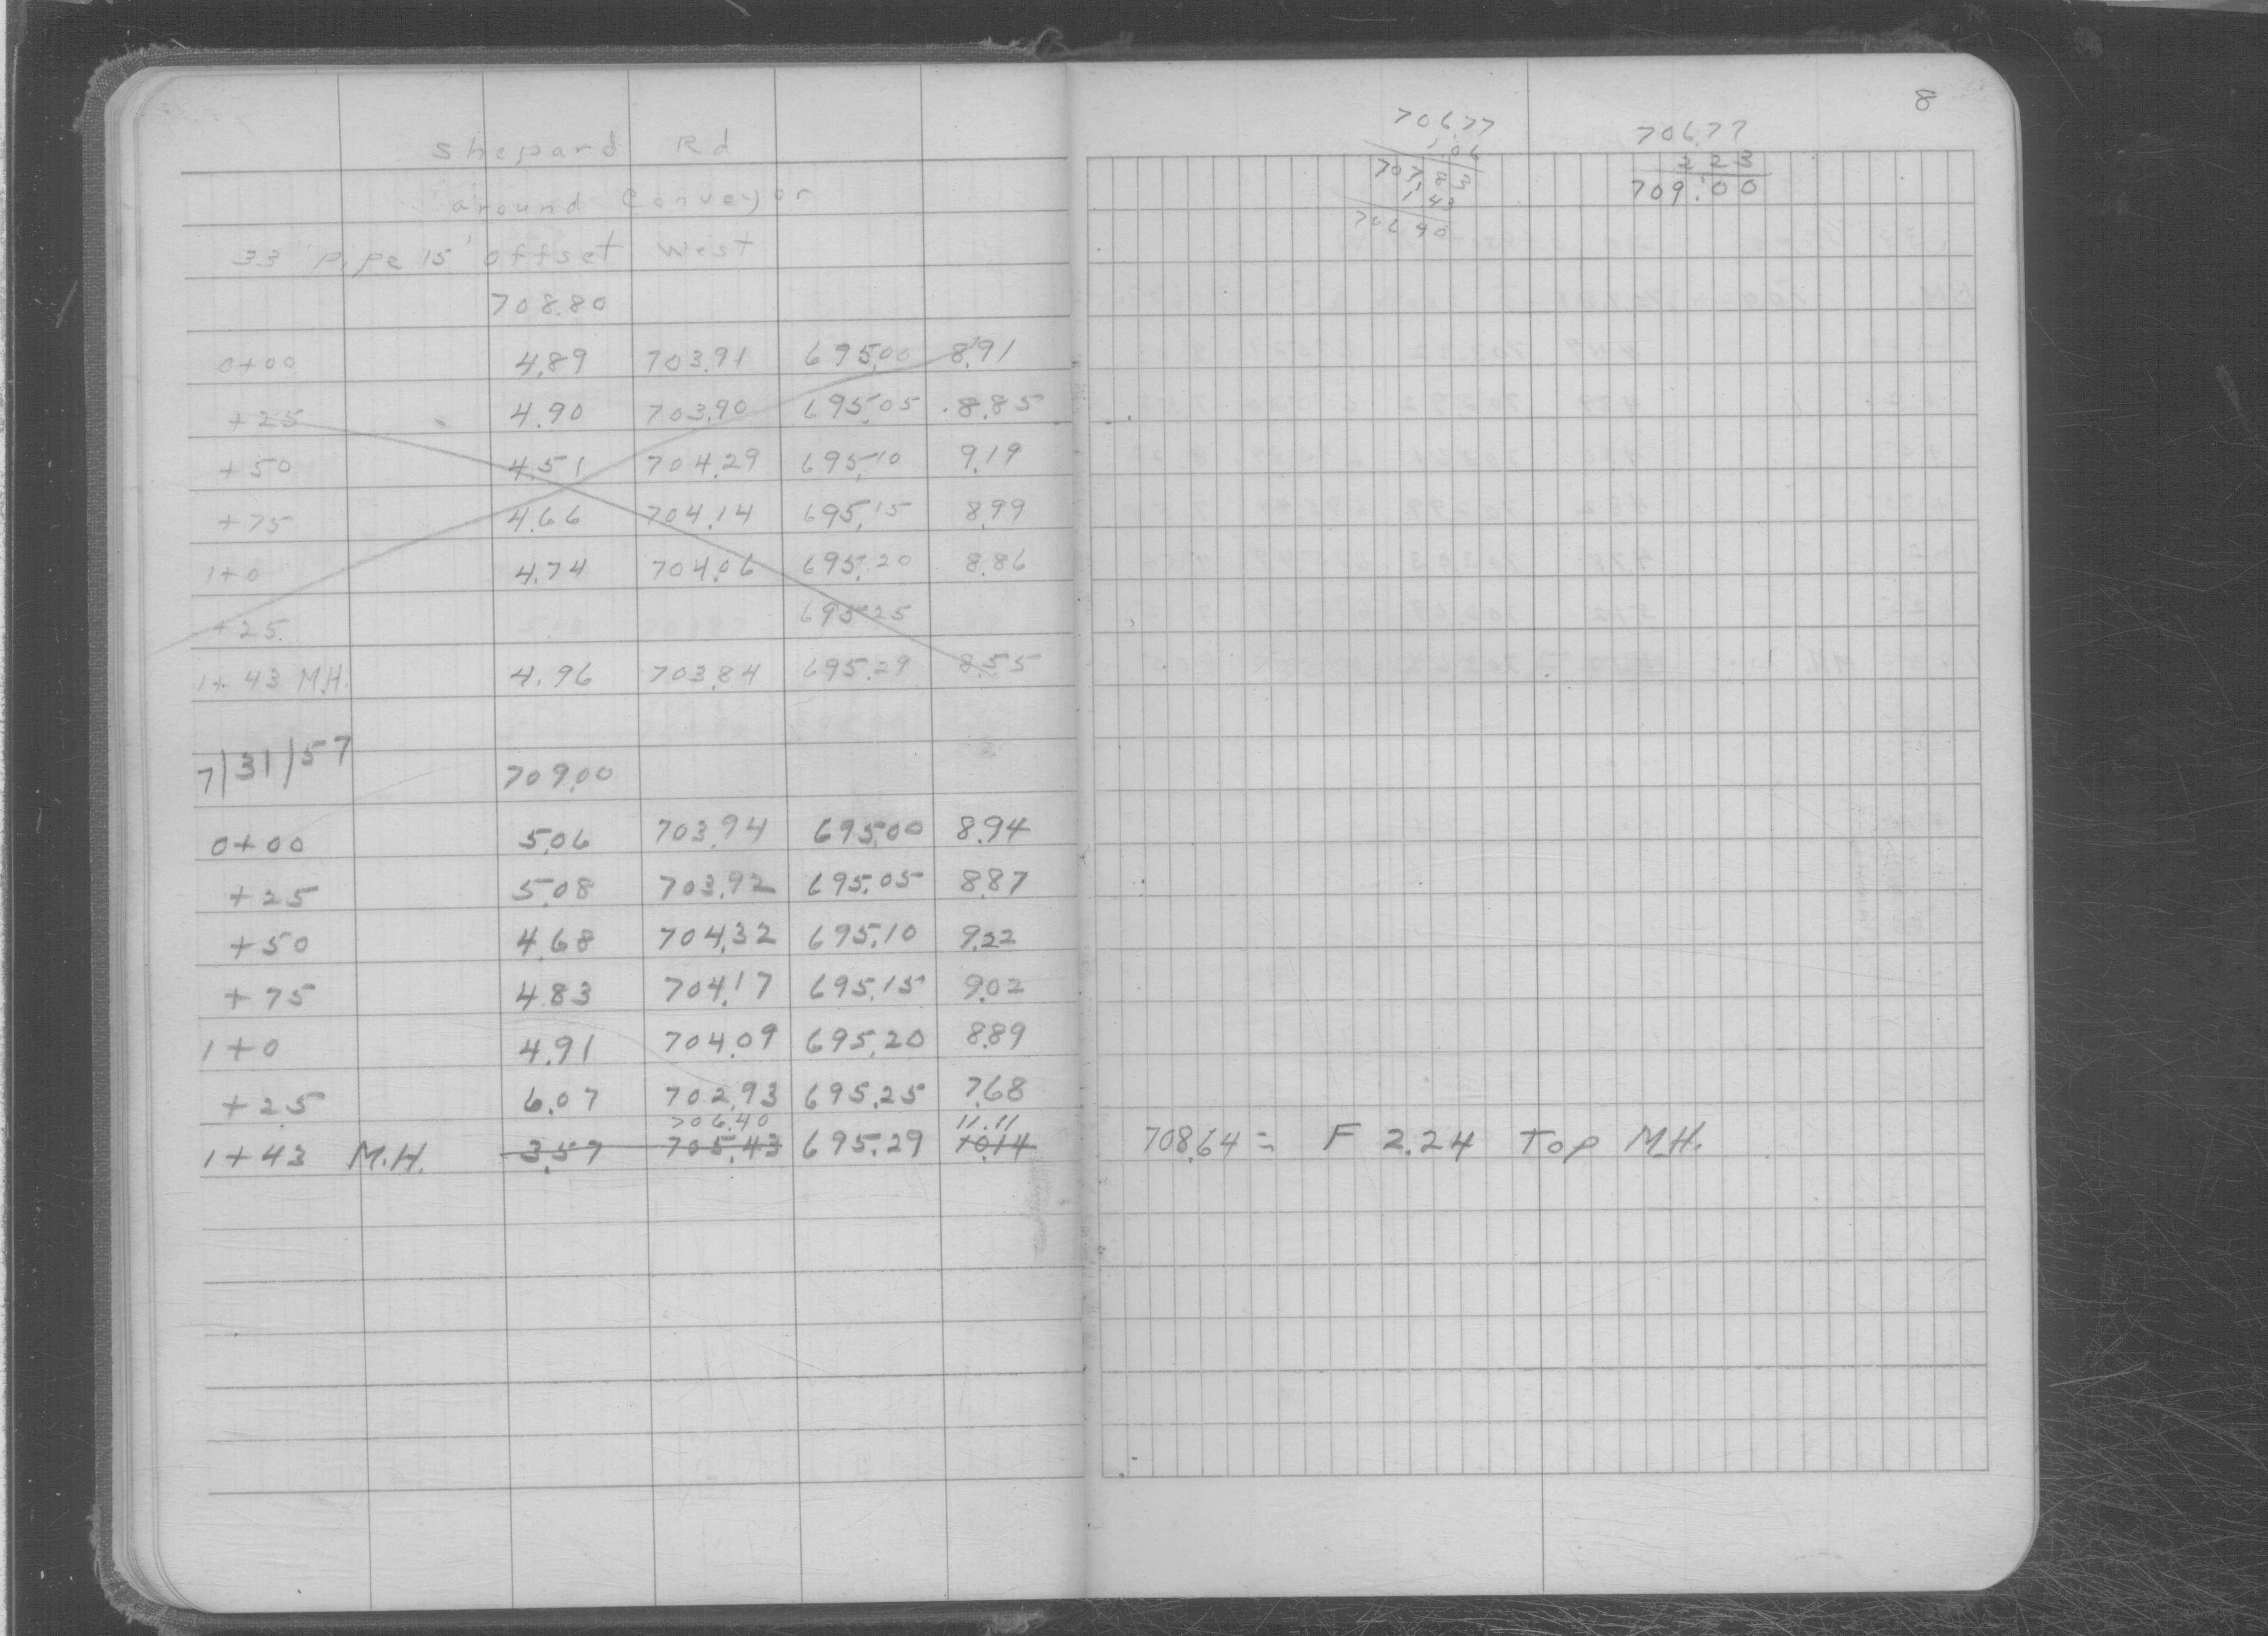 Shepard Rd
around Conveyor
33" Pipe 15' offset West
708.80
0+00 4.89 703.91 695.00 8.91
+25 4.90 703.90 695.05 8.85
+50 4.51 704.29 695.10 9.19
+75 4.66 704.14 695.15 8.99
1+0 4.74 704.06 695.20 8.86
+25 695.25
1+43 M.H. 4.96 703.84 695.29 8.55
7/31/57 709.00
0+00 5.06 703.94 695.00 8.94
+25 5.08 703.92 695.05 8.87
+50 4.68 704.32 695.10 9.22
+75 4.83 704.17 695.15 9.02
1+0 4.91 704.09 695.20 8.89
+25 6.07 702.93 695.25 7.68
706.40 11.11
1+43 M.H. 3.57 705.43 695.29 10.14
8
706.77
1.06
707.83
1.43
706.40
706.77
2.23
709.00
708.64 = F 2.24 Top M.H.